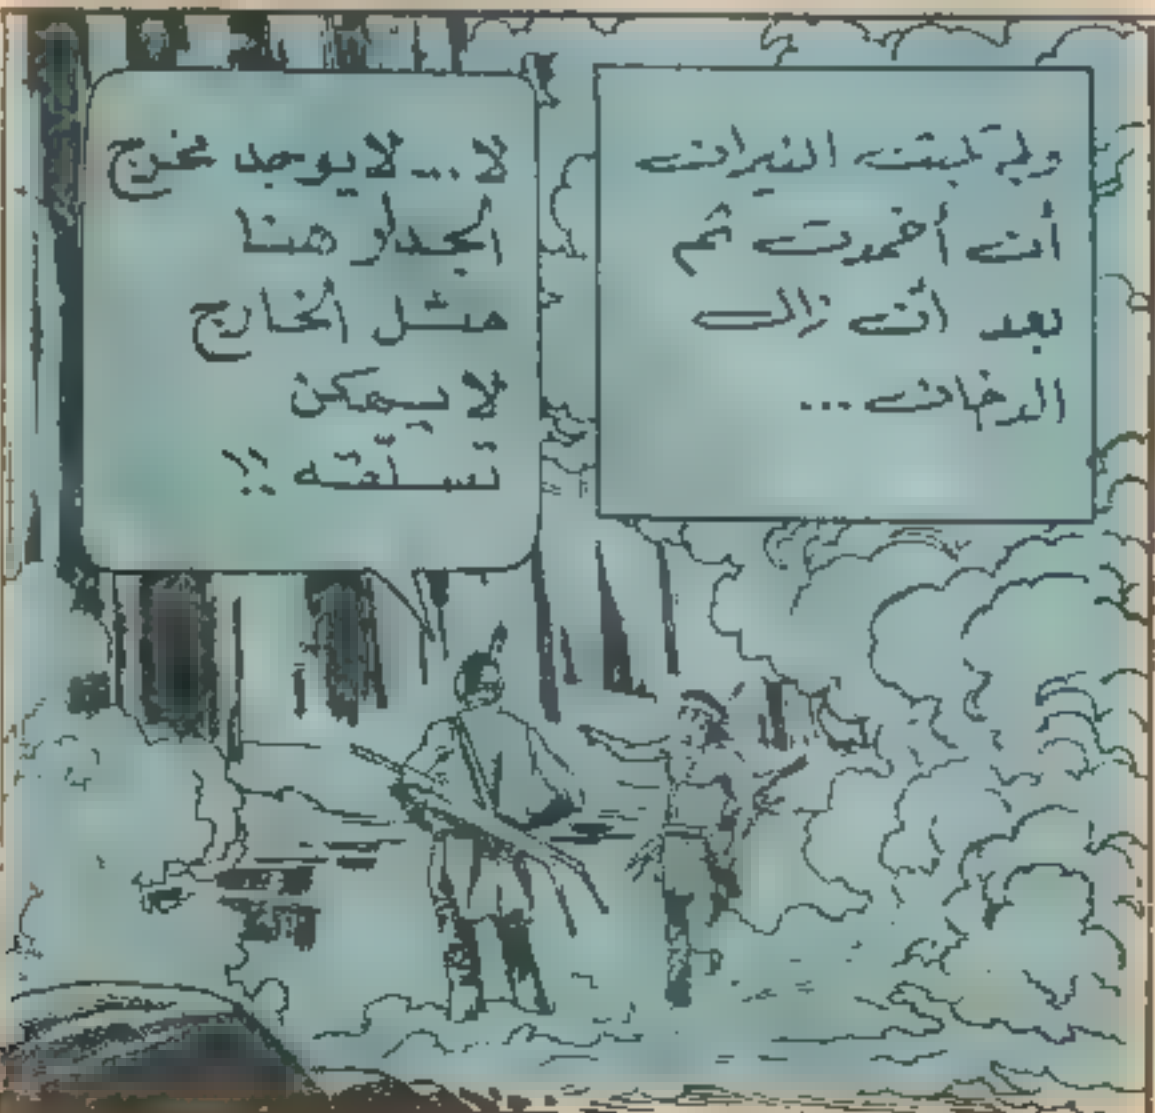 ولم تلبث النيران
أن أخمدت ثم
بعد أن زال
الدخان ...
لا ... لا يوجد مخرج
الجدار هنا
مثل الخارج
لا يمكن
تسلقه !!